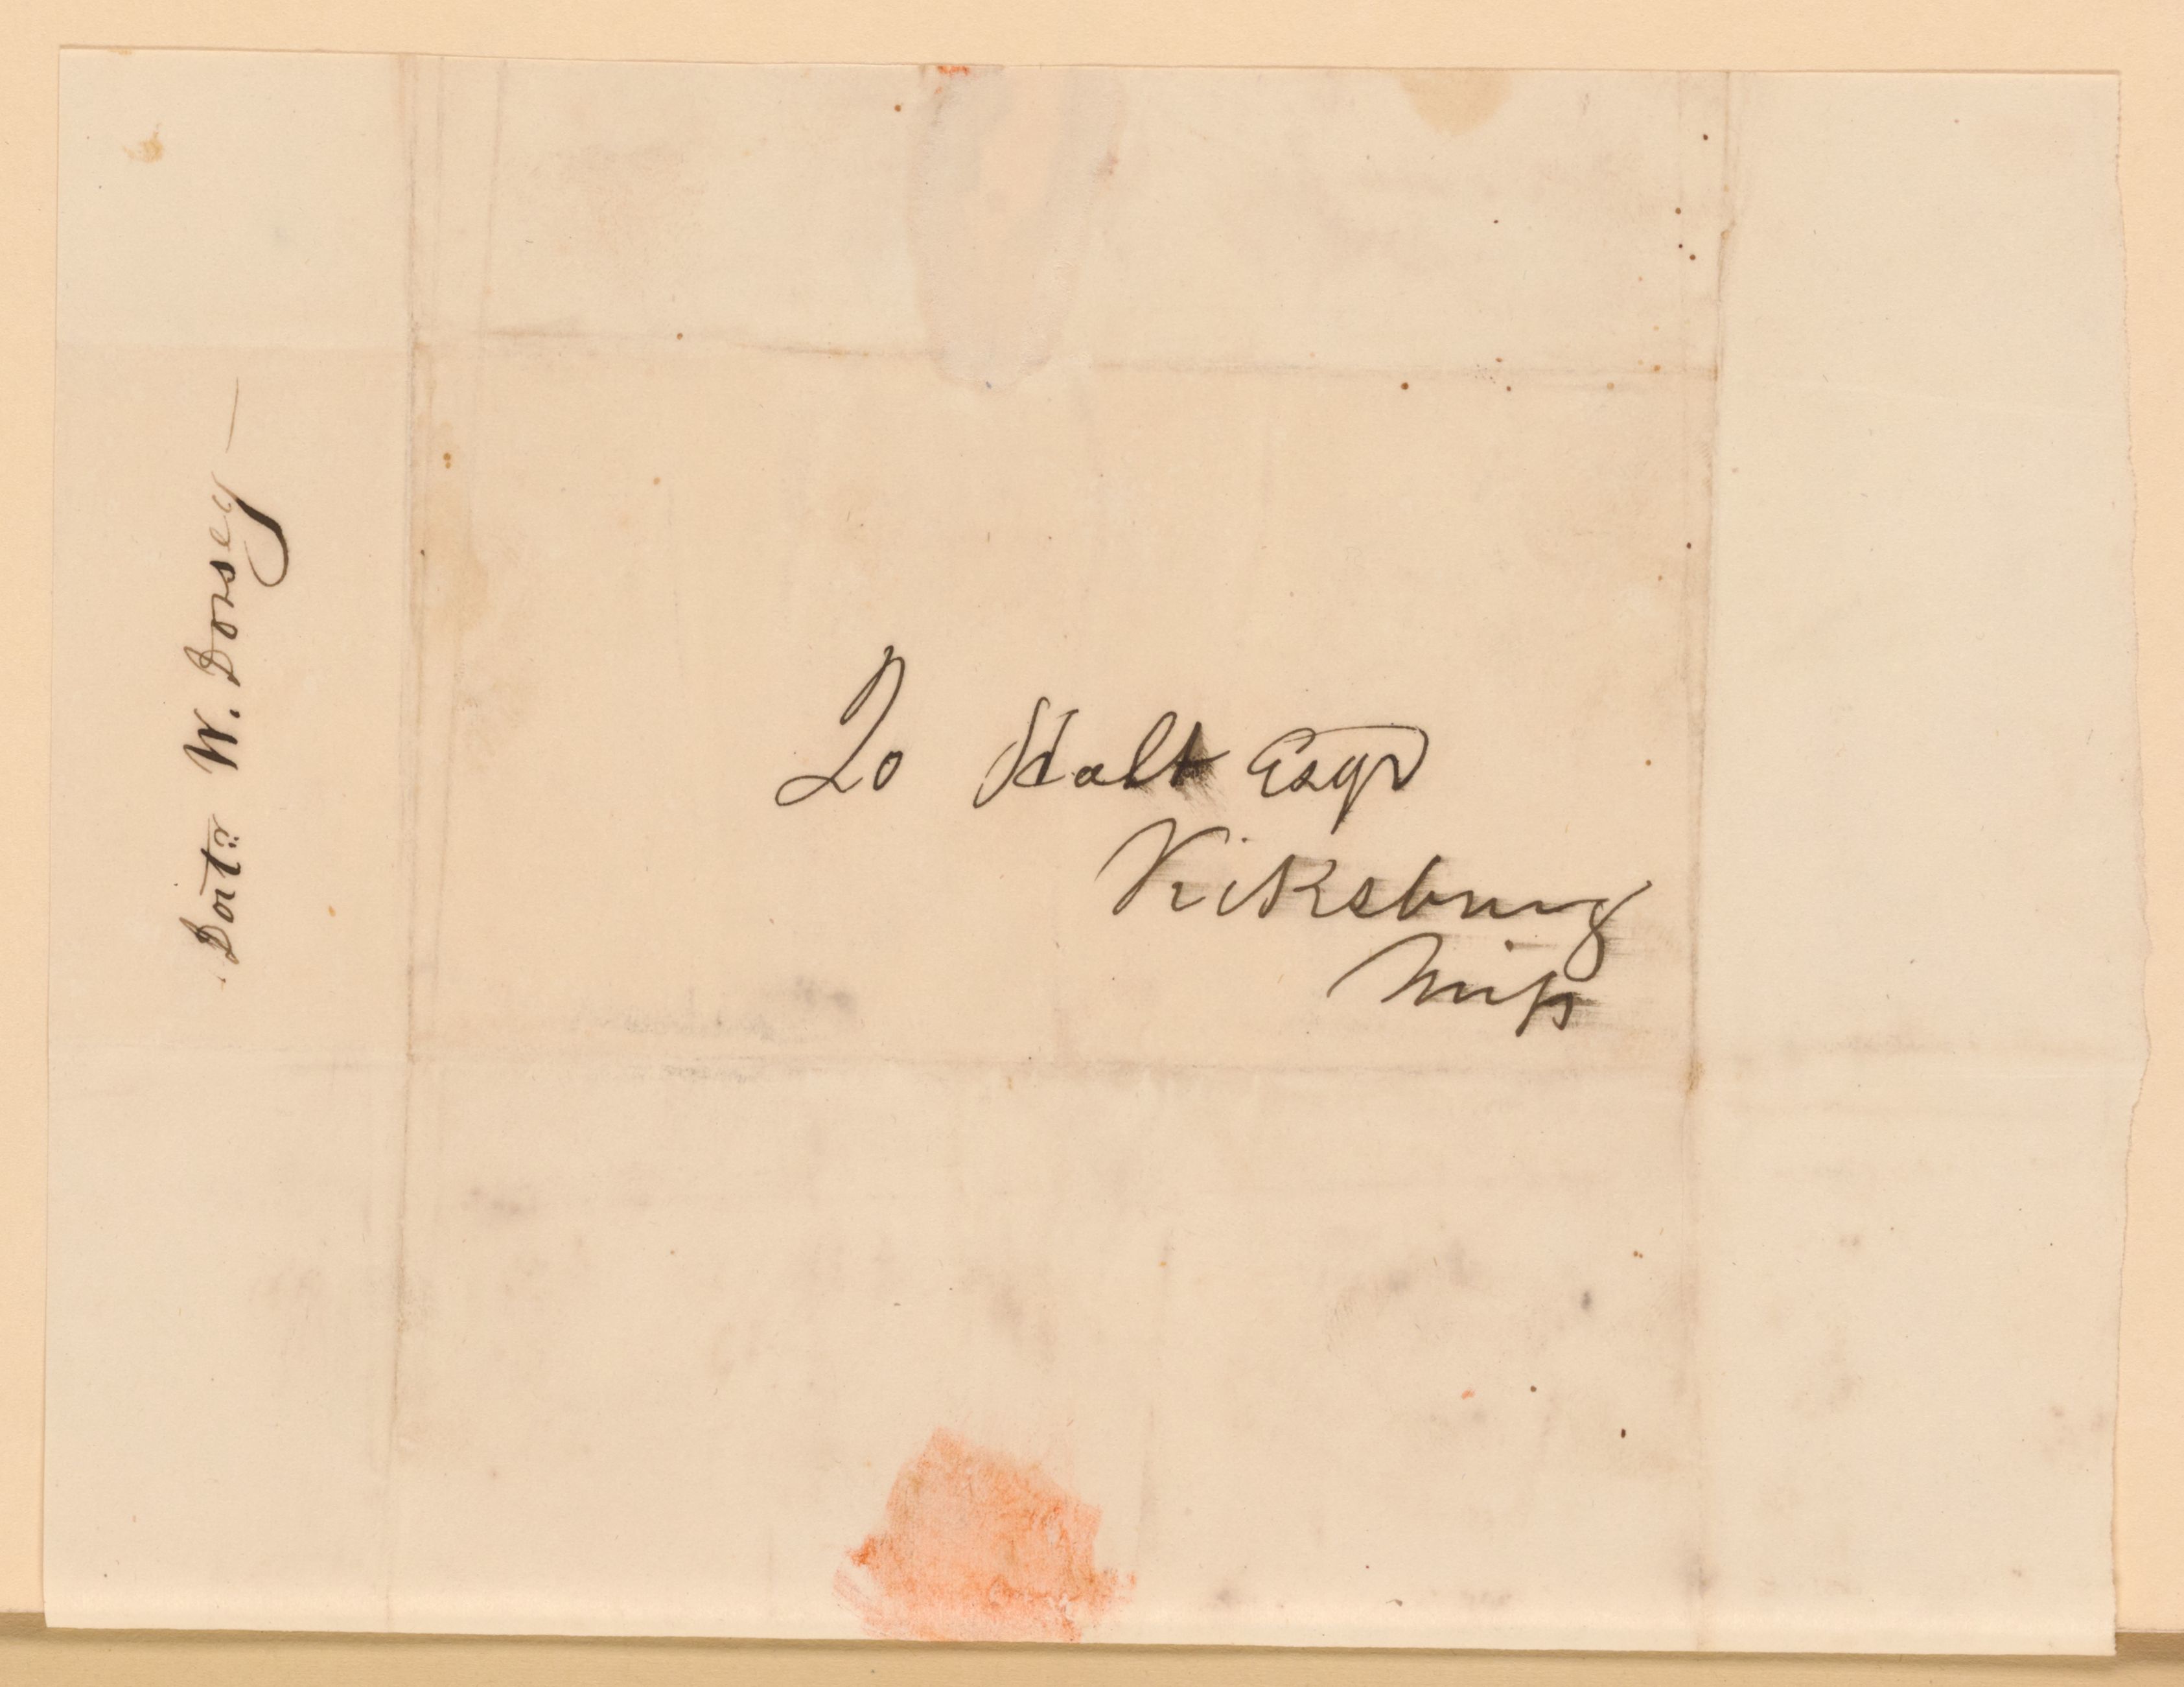 W. Dorsey
Jo Holt Esqr
Vicksburg
Miss